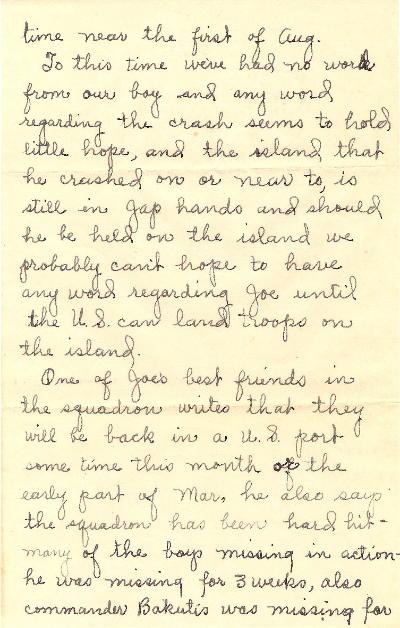 time near the first of Aug.
To this time we've had no word
from our boy and any word
regarding the crash seems to hold
little hope, and the island that
he crashed on or near to, is
still in Jap hands and should
he be held on the island we
probably can't hope to have
any word regarding Joe until
the U.S. can land troops on
the island.
One of Joe's best friends in
the squadron writes that they
will be back in a U.S. port
some time this month or the
early part of Mar, he also says
the squadron has been hard hit-
many of the boys missing in action-
he was missing for 3 weeks, also
commander Bakutis was missing for